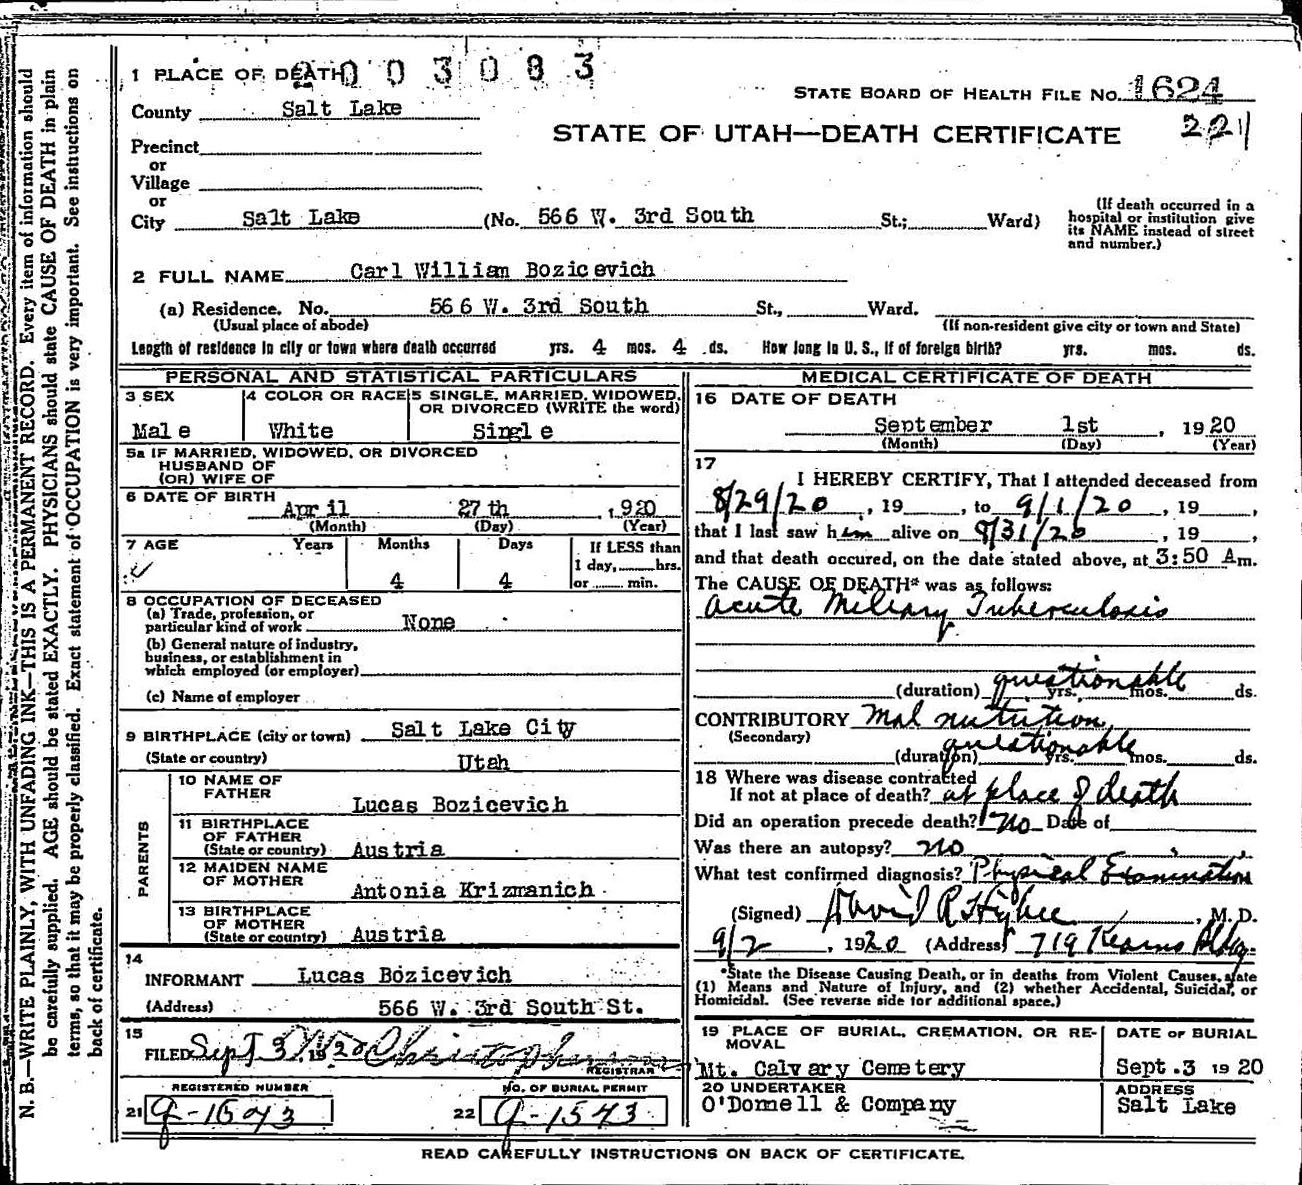 N. B.—WRITE PLAINLY, WITH UNFADING INK—THIS IS A PERMANENT RECORD. Every item of information should
be carefully supplied. AGE should be stated EXACTLY. PHYSICIANS should state CAUSE OF DEATH in plain
terms, so that it may be properly classified. Exact statement of OCCUPATION is very important. See instructions on
back of certificate.
1 PLACE OF DEATH
2003083
County Salt Lake
STATE BOARD OF HEALTH FILE NO. 1624
STATE OF UTAH—DEATH CERTIFICATE 221
Precinct
or
Village
or
City Salt Lake (No. 566 W. 3rd South St.; Ward)
(If death occurred in a
hospital or institution give
its NAME instead of street
and number.)
2 FULL NAME Carl William Bozicevich
(a) Residence. No. 566 W. 3rd South St., Ward.
(Usual place of abode) (If non-resident give city or town and State)
Length of residence in city or town where death occurred yrs. 4 mos. 4 ds. How long in U. S., if of foreign birth? yrs. mos. ds.
PERSONAL AND STATISTICAL PARTICULARS
3 SEX 4 COLOR OR RACE 5 SINGLE, MARRIED, WIDOWED,
OR DIVORCED (WRITE the word)
Male White Single
5a IF MARRIED, WIDOWED, OR DIVORCED
HUSBAND OF
(OR) WIFE OF
6 DATE OF BIRTH
April 27th , 1920
(Month) (Day) (Year)
7 AGE Years Months Days If LESS than
1 day, hrs.
4 4 or min.
8 OCCUPATION OF DECEASED
(a) Trade, profession, or
particular kind of work None
(b) General nature of industry,
business, or establishment in
which employed (or employer)
(c) Name of employer
9 BIRTHPLACE (city or town) Salt Lake City
(State or country) Utah
PARENTS
10 NAME OF
FATHER Lucas Bozicevich
11 BIRTHPLACE
OF FATHER
(State or country) Austria
12 MAIDEN NAME
OF MOTHER Antonia Krizmanich
13 BIRTHPLACE
OF MOTHER
(State or country) Austria
14
INFORMANT Lucas Bozicevich
(Address) 566 W. 3rd South St.
15
FILED Sept 3 1920
REGISTRAR
REGISTERED NUMBER NO. OF BURIAL PERMIT
21 22 9-1543
MEDICAL CERTIFICATE OF DEATH
16 DATE OF DEATH
September 1st , 1920
(Month) (Day) (Year)
17
I HEREBY CERTIFY, That I attended deceased from
8/29/20 , 19 , to 9/1/20 , 19 ,
that I last saw him alive on 8/31/20 , 19 ,
and that death occured, on the date stated above, at 3:50 Am.
The CAUSE OF DEATH* was as follows:
Acute Miliary Tuberculosis
(duration) questionable yrs. mos. ds.
CONTRIBUTORY Mal nutrition
(Secondary)
(duration) questionable yrs. mos. ds.
18 Where was disease contracted
If not at place of death? at place of death
Did an operation precede death? No Date of
Was there an autopsy? no
What test confirmed diagnosis? Physical Examination
(Signed) David R Higbee , M. D.
9/2 , 1920 (Address) 719 Kearns Bldg.
*State the Disease Causing Death, or in deaths from Violent Causes, state
(1) Means and Nature of Injury, and (2) whether Accidental, Suicidal, or
Homicidal. (See reverse side for additional space.)
19 PLACE OF BURIAL, CREMATION, OR RE-
MOVAL
Mt. Calvary Cemetery
DATE OF BURIAL
Sept. 3 1920
20 UNDERTAKER
O'Donnell & Company
ADDRESS
Salt Lake
READ CAREFULLY INSTRUCTIONS ON BACK OF CERTIFICATE.